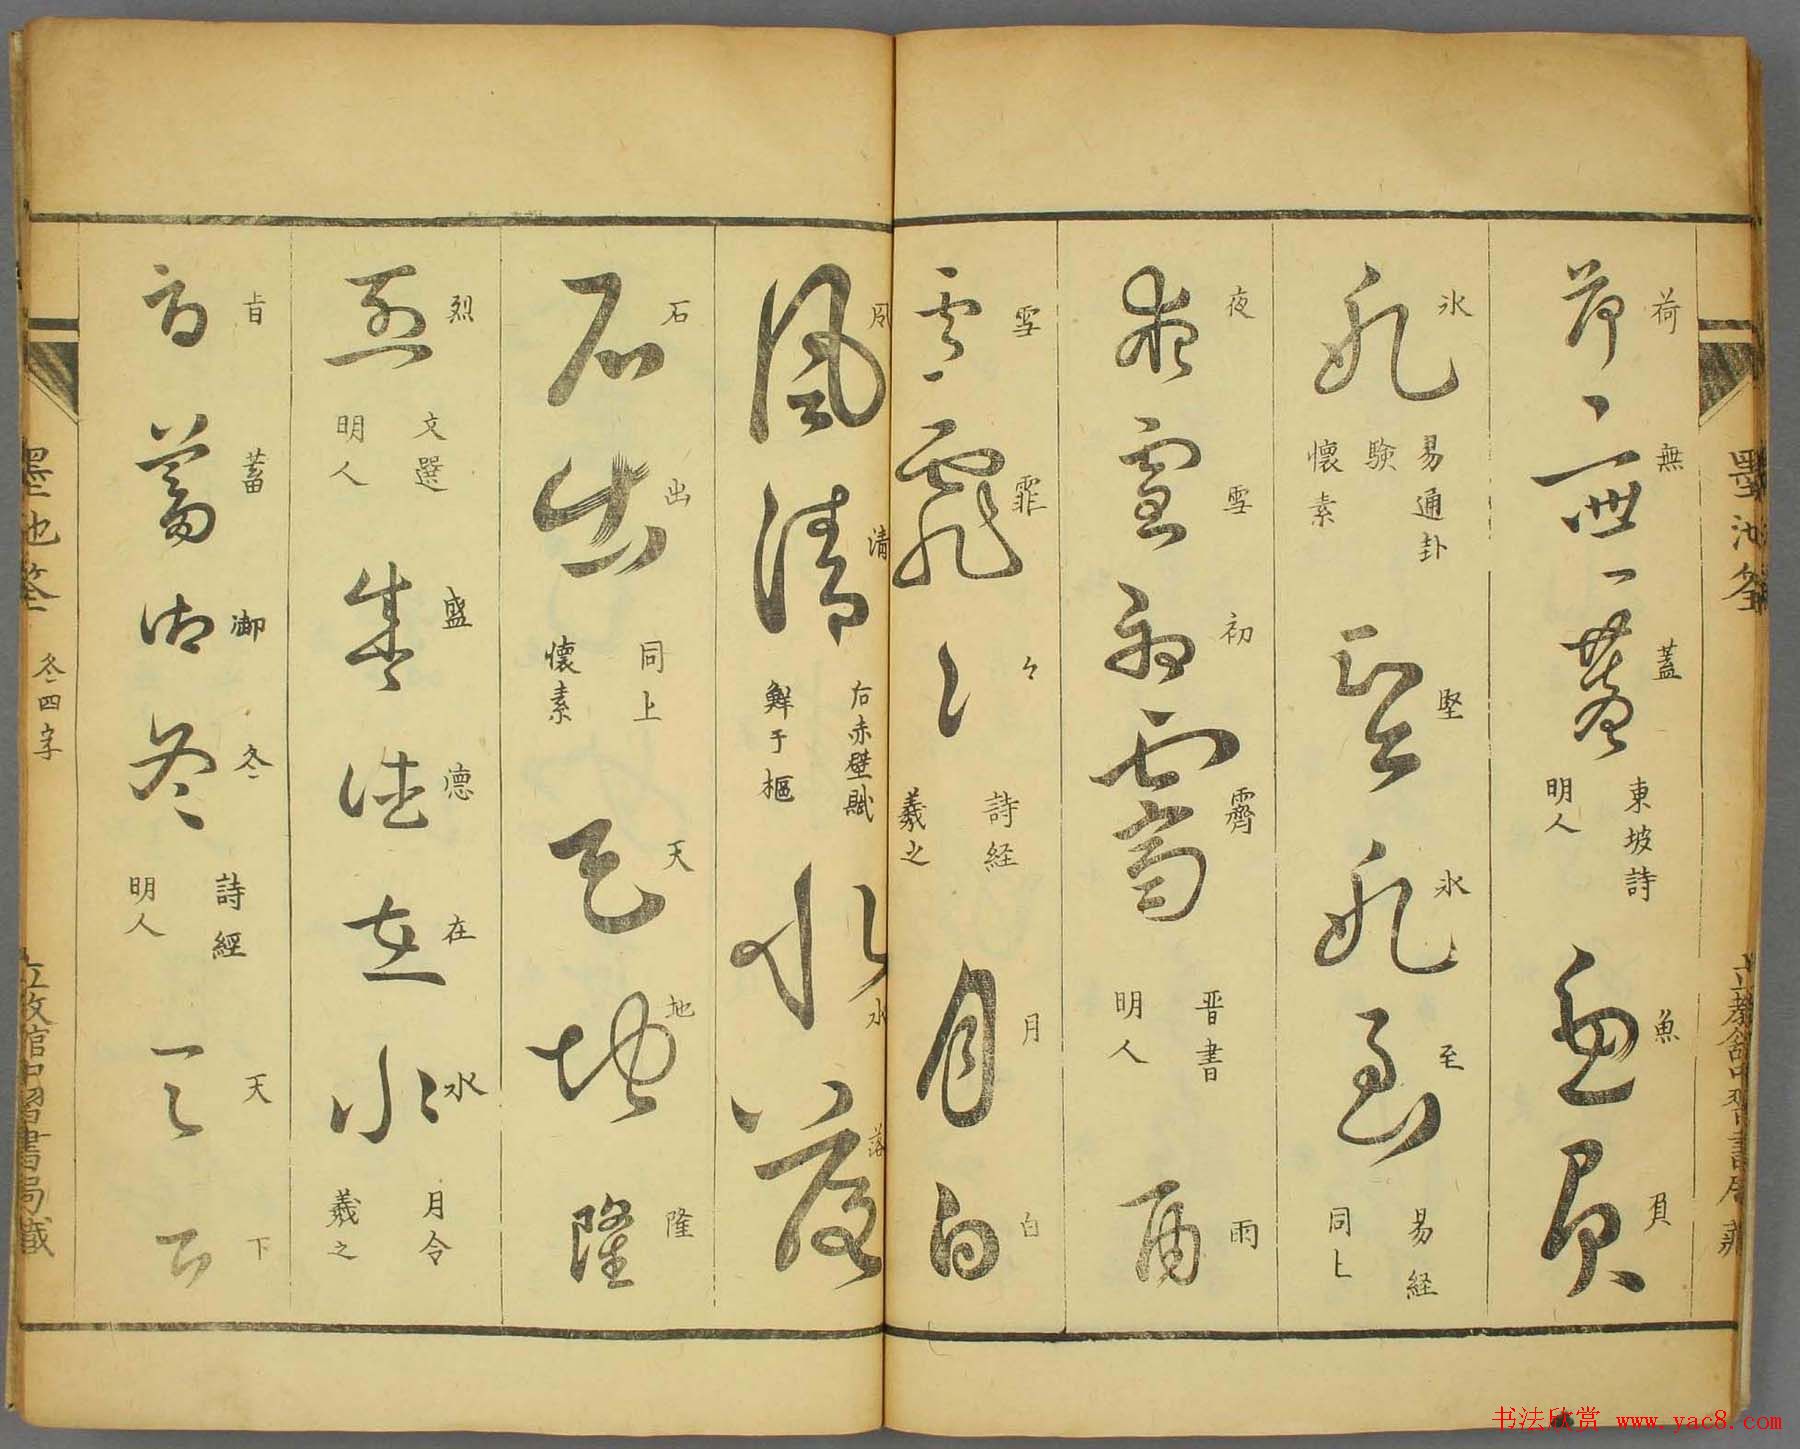 荷無蓋 東坡詩 明人 魚負
氷 易通卦験 懐素 堅氷至 易経 同上
夜雪初霽 晋書 明人 雨
雪霏々 詩経 羲之 月白
风清 右赤壁賦 鮮于樞 水落
石出 同上 懐素 天地隆
烈 文選 明人 盛德在水 月令 羲之
旨蓄御冬 詩經 明人 天下
墨池筌 冬四字
書法欣赏 www.yac8.com